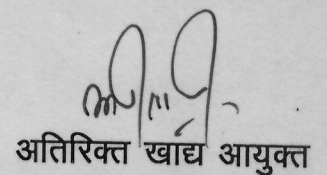 अतिरिक्त खाद्य आयुक्त